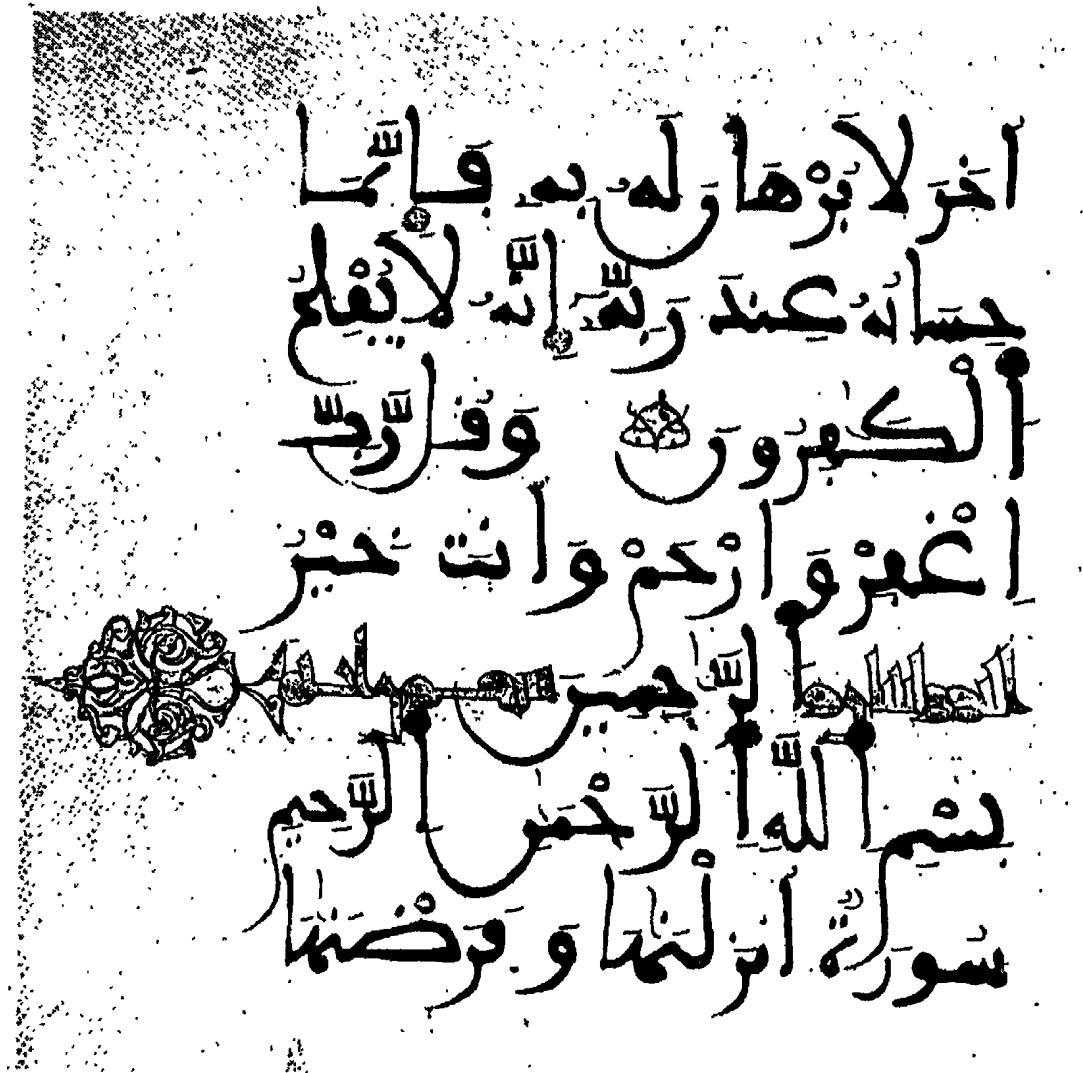 اخَرَ لَا بُرْهَانَ لَهُ بِهِ فَإِنَّمَا
حِسَابُهُ عِندَ رَبِّهِ إِنَّهُ لَا يُفْلِحُ
الْكَٰفِرُونَ وَقُل رَّبِّ
اغْفِرْ وَارْحَمْ وَأَنتَ خَيْرُ
الرَّٰحِمِينَ
بِسْمِ اللَّهِ الرَّحْمَٰنِ الرَّحِيمِ
سُورَةٌ أَنزَلْنَٰهَا وَفَرَضْنَٰهَا